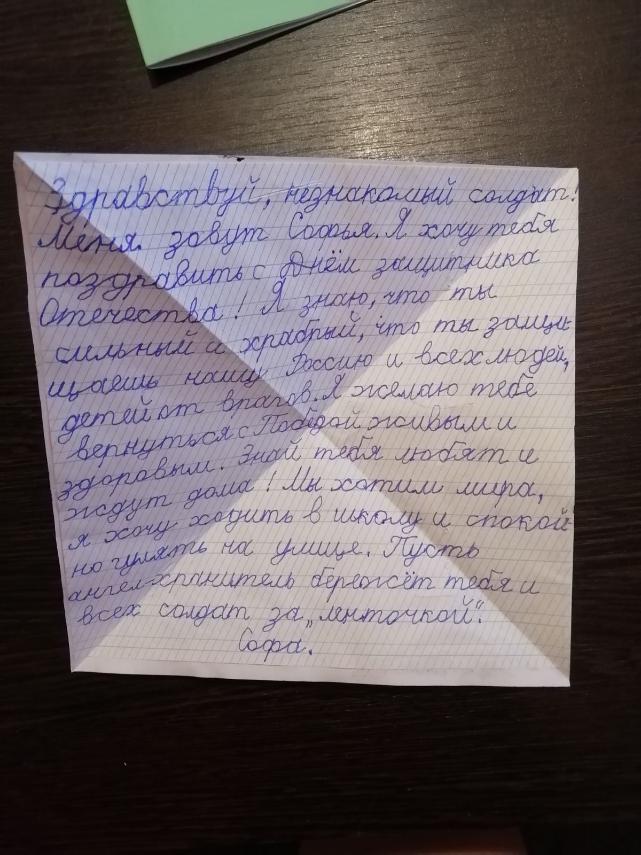 Здравствуй, незнакомый солдат!
Меня зовут Софья. Я хочу тебя
поздравить с Днём защитника
Отечества! Я знаю, что ты
сильный и храбрый, что ты защи-
щаешь нашу Россию и всех людей,
детей от врагов. Я желаю тебе
вернуться с Победой живым и
здоровым. Знай тебя любят и
ждут дома! Мы хотим мира,
я хочу ходить в школу и спокой-
но гулять на улице. Пусть
ангел-хранитель бережёт тебя и
всех солдат за „ленточкой“.
Софа.